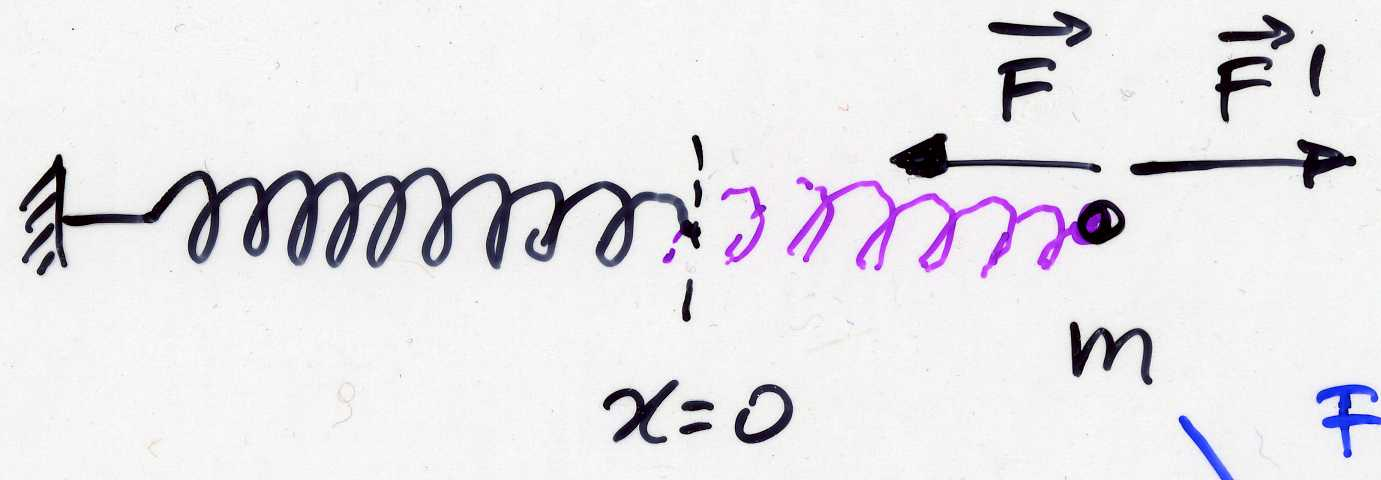 F⃗ F⃗ '
m
x=0
F